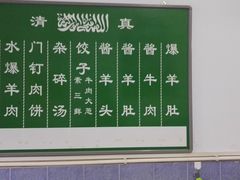 清 真
爆羊肚
酱牛肉
酱羊肚
酱羊头
饺子
牛肉大葱
素三鲜
杂碎汤
门钉肉饼
水爆羊肉